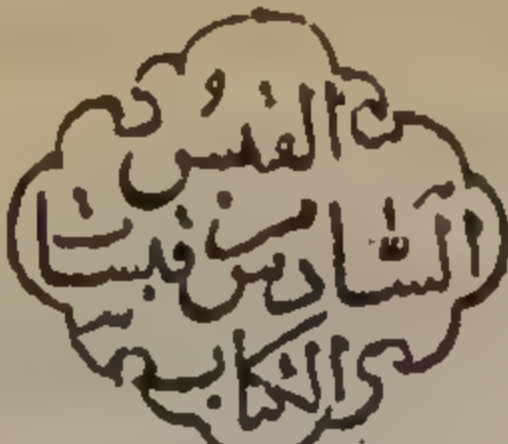 القبسُ
السَّادس من قبسات
الكتاب